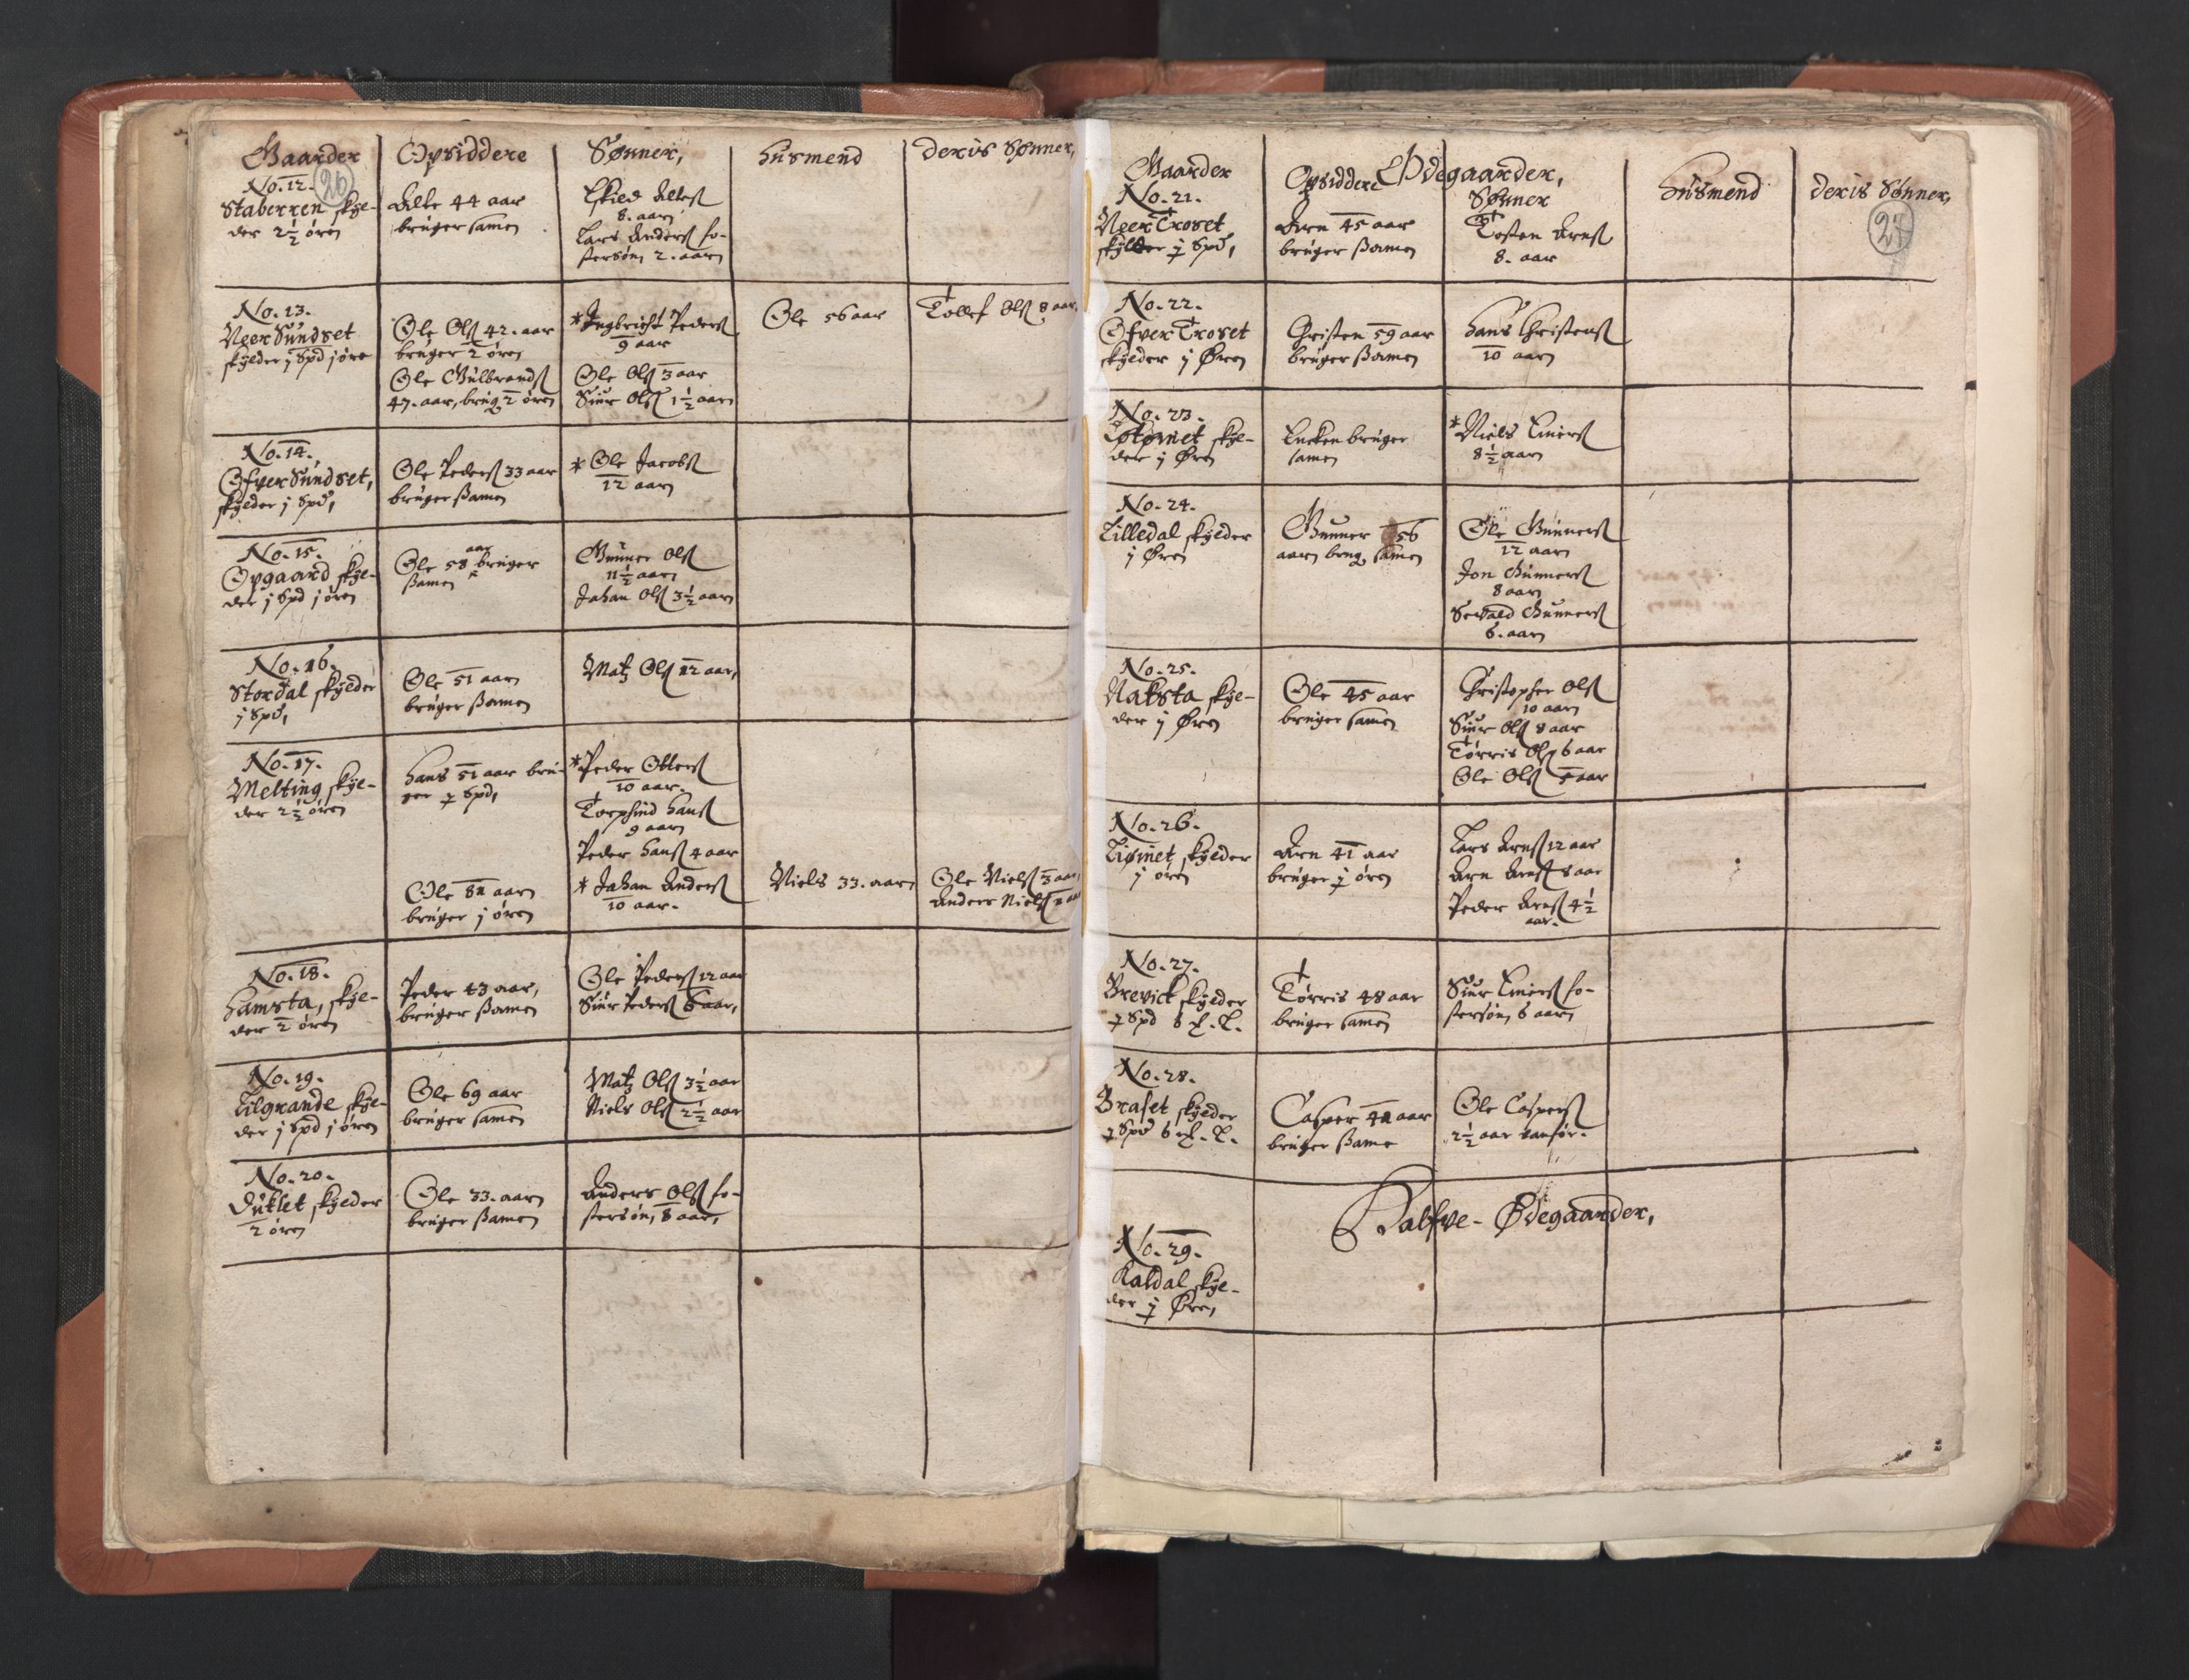 Gaarder Opsiddere Sønner, Husmend deris Sønner,
26
No. 12.
Staberren skyl-
der 2½ ören
Atle 44 aar
bruger samen
Eskild Atles
8. aar
Lars Anders fo-
stersön, 2. aar
No. 13.
Neer Sundset
skylder j Spd j öre
Ole Ols 42. aar
bruger 2 ören
Ole Gulbrands
47. aar, brug 2 ören
* Ingbricht Peders
9 aar
Ole Ols 3 aar
Siur Ols 1½ aar
Ole 56 aar
Tollef Ols 8 aar
No. 14.
Ofver Sundset,
skylder j Spd,
Ole Peders 33 aar
bruger samen
* Ole Jacobs
12 aar
No. 15.
Opgaard skyl-
der j Spd j ören
aar
Ole 58 bruger
samen
Gunner Ols
11½ aar
Johan Ols 3½ aar
No. 16.
Stordal skylder
j Spd,
Ole 51 aar
bruger samen
Matz Ols 12 aar,
No. 17.
Melting skyl-
der 2½ ören
Hans 51 aar bru-
ger ½ Spd,
* Peder Olles
10 aar.
Torphind Hans
9 aar
Peder Hans 4 aar
Ole aar
bruger j ören
* Johan Anders
10 aar.
Niels 33. aar
Ole Niels 3 aar
Anders Niels
No. 18.
Hamsta, skyl-
der 2 ören
Peder 43 aar,
bruger samen
Ole Peders 12 aar
Siur Peders 6 aar,
No. 19.
Lilgrande skyl-
der j Spd j ören
Ole 69 aar
bruger samen
Matz Ols 3½ aar
Niels Ols 2½ aar
No. 20.
Duklet skylder
2 ören
Ole 33. aar
bruger samen
Anders Ols fo-
stersön, 8 aar,
Ødegaarder,
Gaarder Opsiddere Sønner Husmend deris Sønner,
27
No. 21.
Neer Troset
skylder ½ Spd,
Arn 45 aar
bruger samen
Tosten Arns
8. aar
No. 22.
Ofver Troset
skylder j Øren
Christen 59 aar
bruger samen
Hans Christens
10 aar
No. 23.
Løtømet skyl-
der j Øren
Encken bruger
samen
* Niels Einers
8½ aar
No. 24.
Lilledal skylder
j Øren
Gunner 56
aar brug samen
Ole Gunners
12 aar
Jon Gunners
8 aar
Sevald Gunners
6. aar
No. 25.
Naksta skyl-
der j Øren
Ole 45 aar
bruger samen
Christopher Ols
10 aar
Siur Ols 8 aar
Törris Ols 6 aar
Ole Ols aar
No. 26.
Liømet skylder
j ören
Arn 41 aar
bruger j ören
Lars Arns 12 aar
Arn Arns 8 aar
Peder Arns 4½
aar.
No. 27.
Brevick skylder
½ Spd 6 . L.
Törris 48 aar
bruger samen
Siur Einers fo-
stersön, 6 aar,
No. 28.
Braset skylder
½ Spd 6 . L.
Casper aar
bruger same
Ole Caspers
2½ aar vanför.
Halfve-Ødegaarder,
No. 29.
Kaldal skyl-
der ½ Øre,